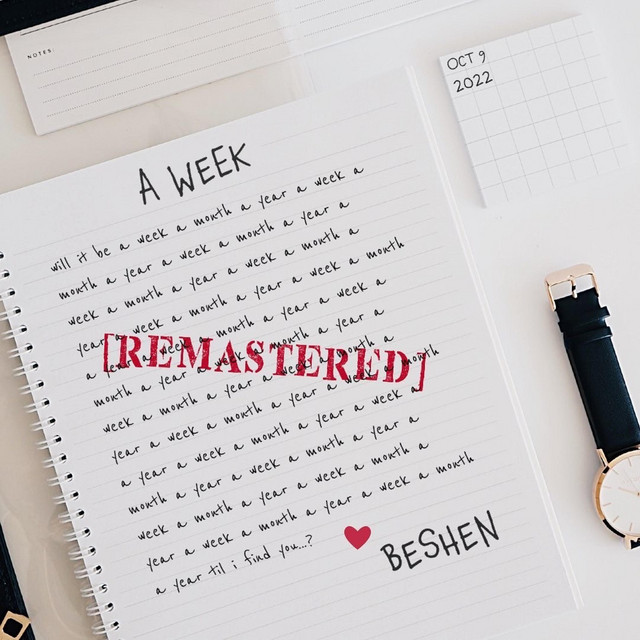 NOTES:
OCT 9
2022
A WEEK
will it be a week a month a year a week a
month a year a week a month a year a
week a month a year a week a month a
year a week a month a year a week a month
a year a week a month a year a week a
month a year a week a month a year a
[REMASTERED]
week a month a year a week a month a
year a week a month a year a week a month
a year a week a month a year a week a
month a year a week a month a year a
week a month a year a week a month a
year a week a month a year a week a month
a year til i find you...?
BESHEN